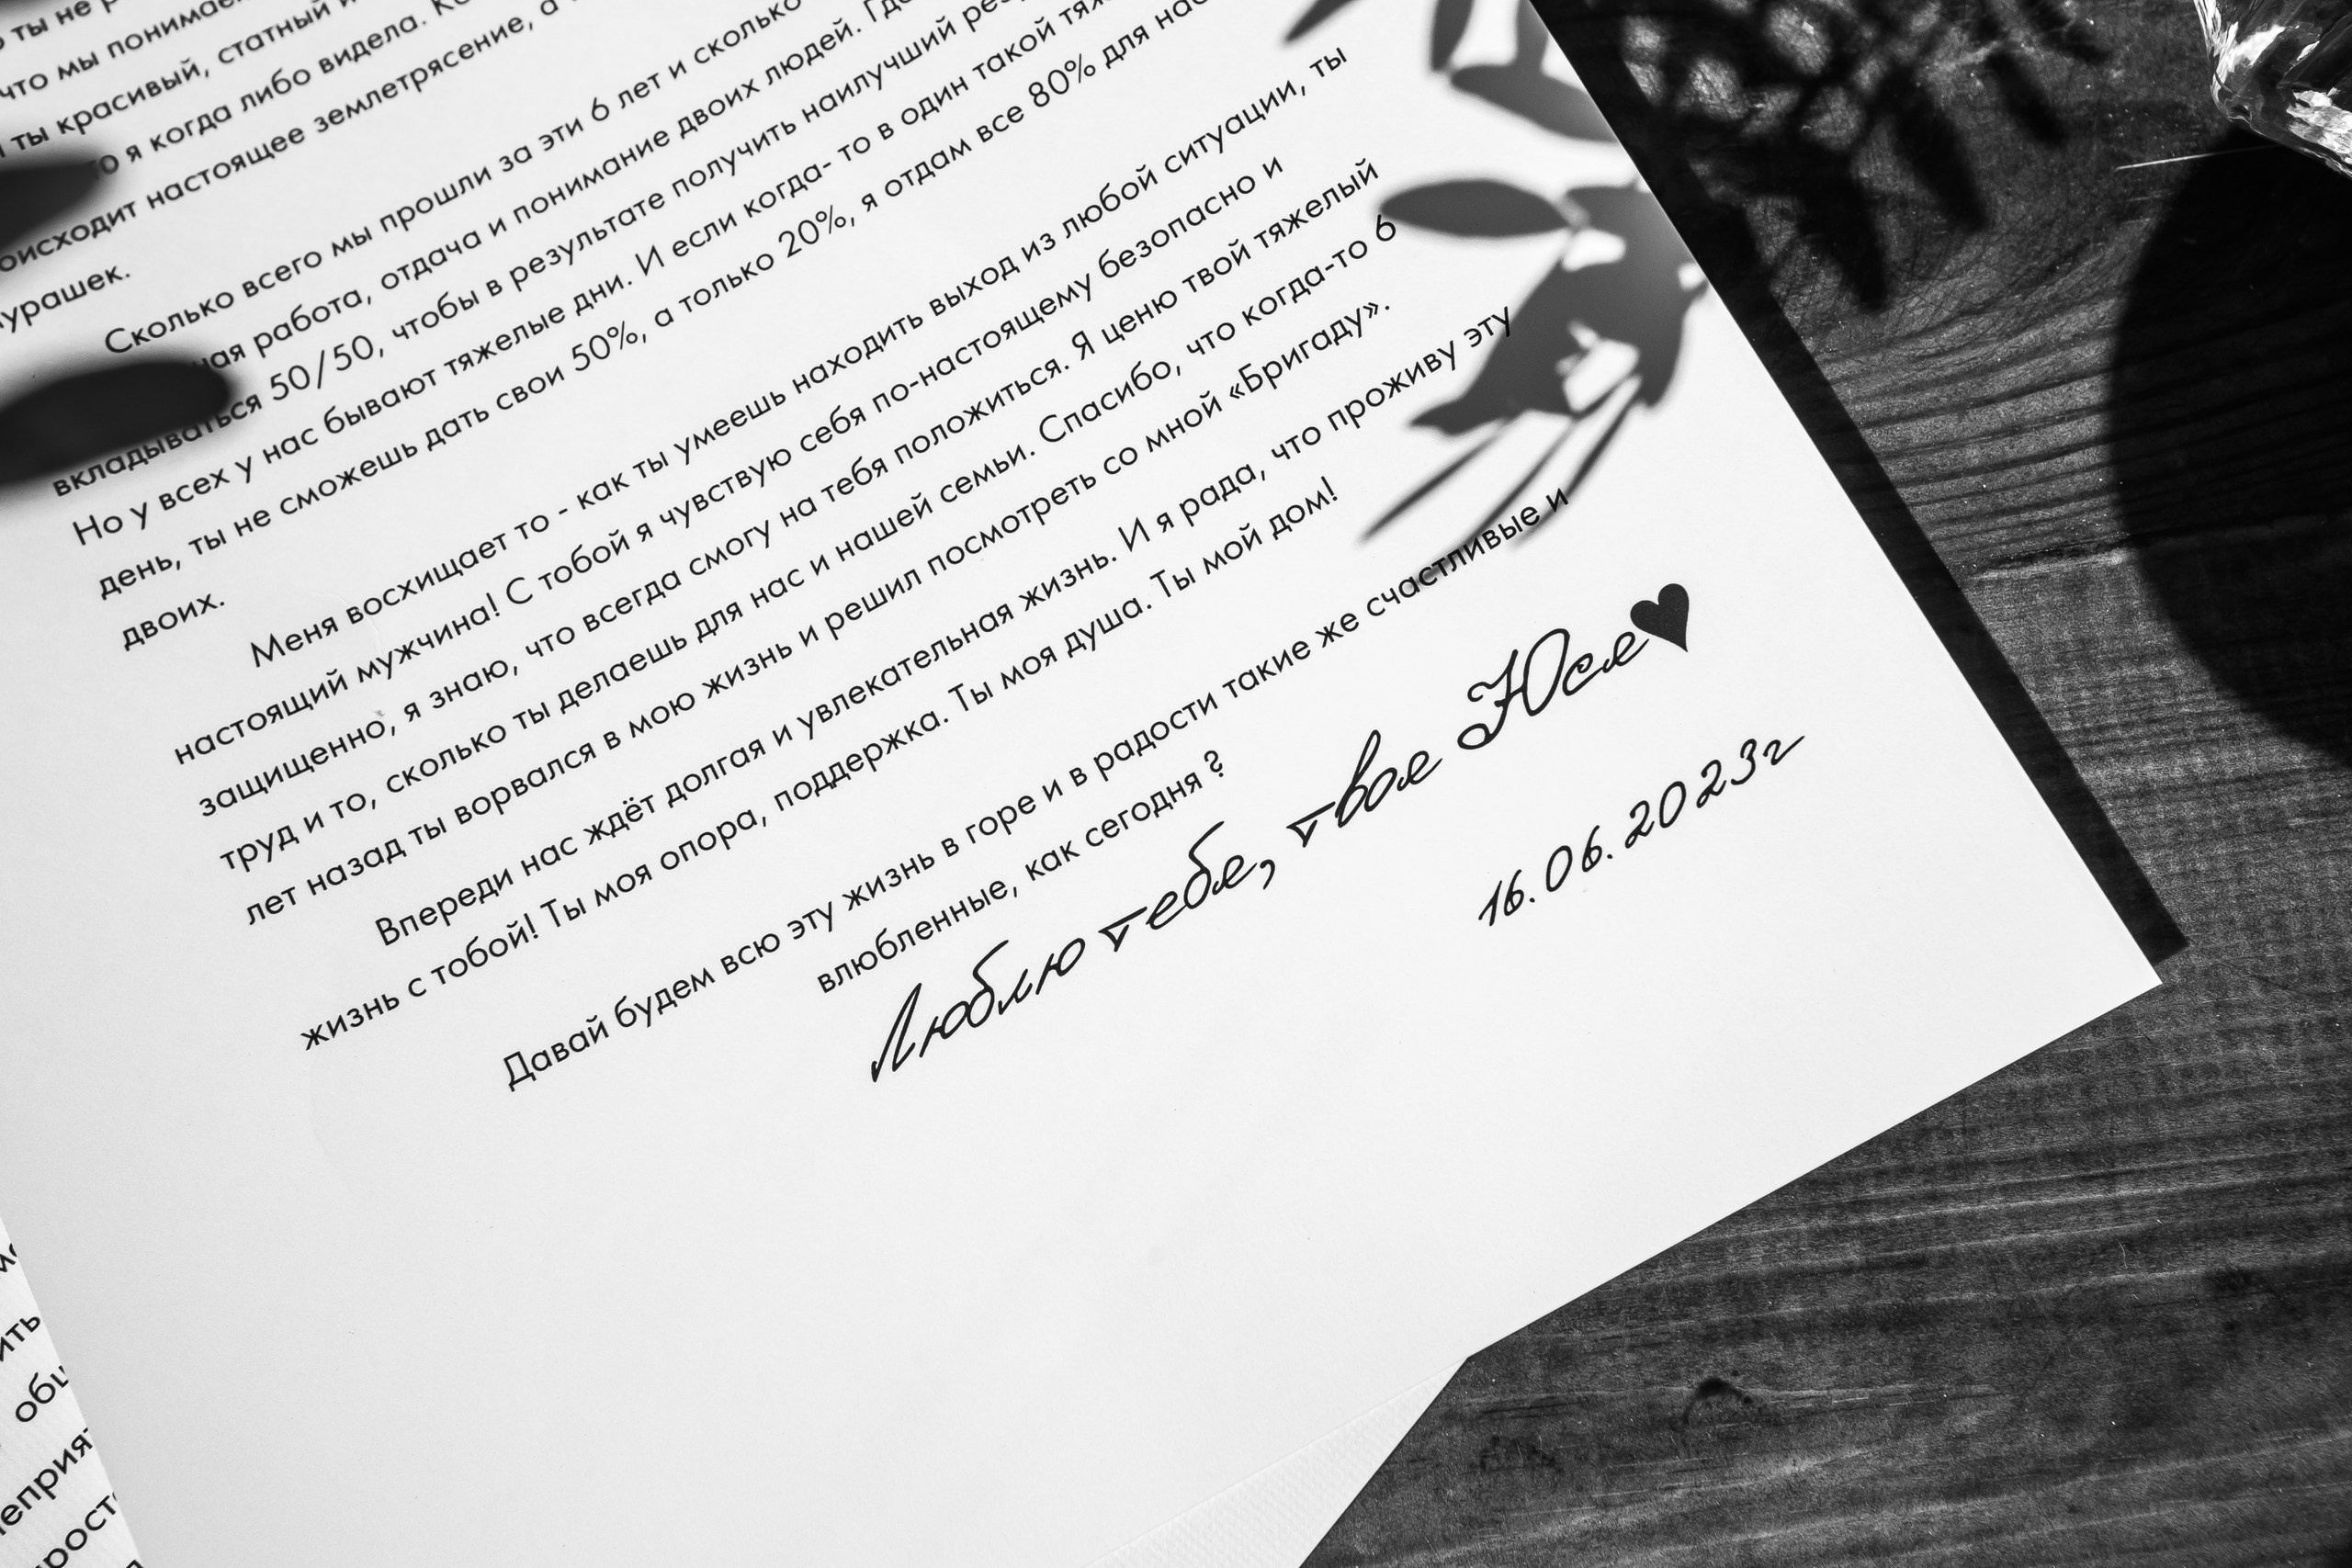 ты не
что мы понимаем
ты красивый, статный и
я когда либо видела.
настоящее землетрясение, а
мурашек.
Сколько всего мы прошли за эти 6 лет и сколько
работа, отдача и понимание двоих людей. Где
вкладываться 50/50, чтобы в результате получить наилучший
Но у всех у нас бывают тяжелые дни. И если когда- то в один такой
день, ты не сможешь дать свои 50%, а только 20%, я отдам все 80% для нас
двоих.
Меня восхищает то - как ты умеешь находить выход из любой ситуации, ты
настоящий мужчина! С тобой я чувствую себя по-настоящему безопасно и
защищенно, я знаю, что всегда смогу на тебя положиться. Я ценю твой тяжелый
труд и то, сколько ты делаешь для нас и нашей семьи. Спасибо, что когда-то 6
лет назад ты ворвался в мою жизнь и решил посмотреть со мной «Бригаду».
Впереди нас ждёт долгая и увлекательная жизнь. И я рада, что проживу эту
жизнь с тобой! Ты моя опора, поддержка. Ты моя душа. Ты мой дом!
Давай будем всю эту жизнь в горе и в радости такие же счастливые и
влюбленные, как сегодня ?
Люблю тебя, твоя Юся♥
16.06.2023г